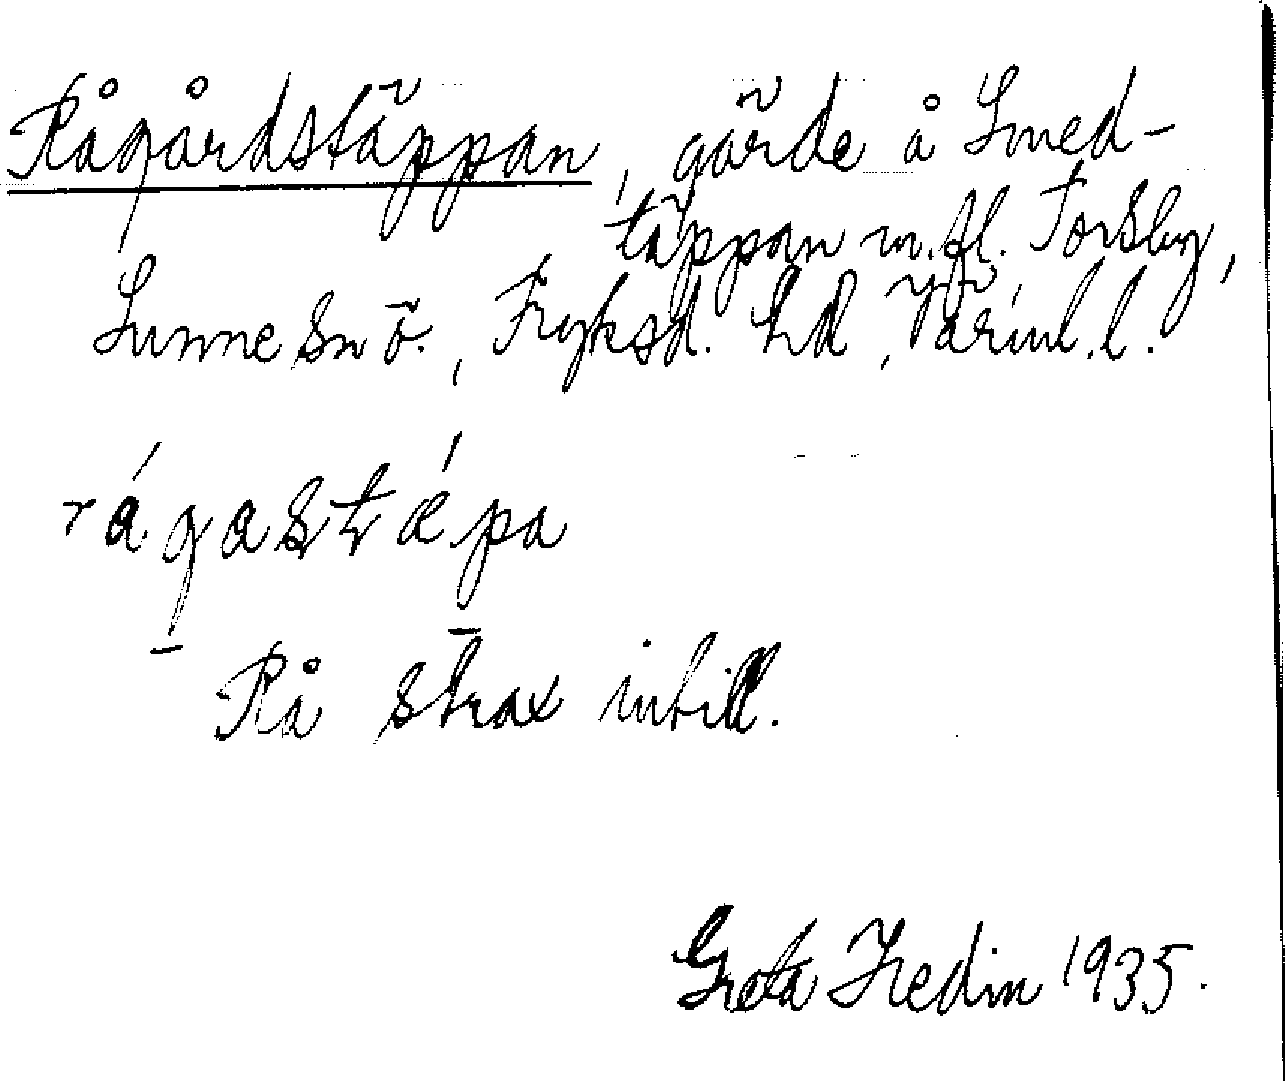 Rågårdstäppan, gärde å Smed-
täppan m.fl. Torsby,
Sunne sn ö., Fryksd. hd, Värml.l.
rågastæpa
Rå strax intill.
Greta Hedin 1935.